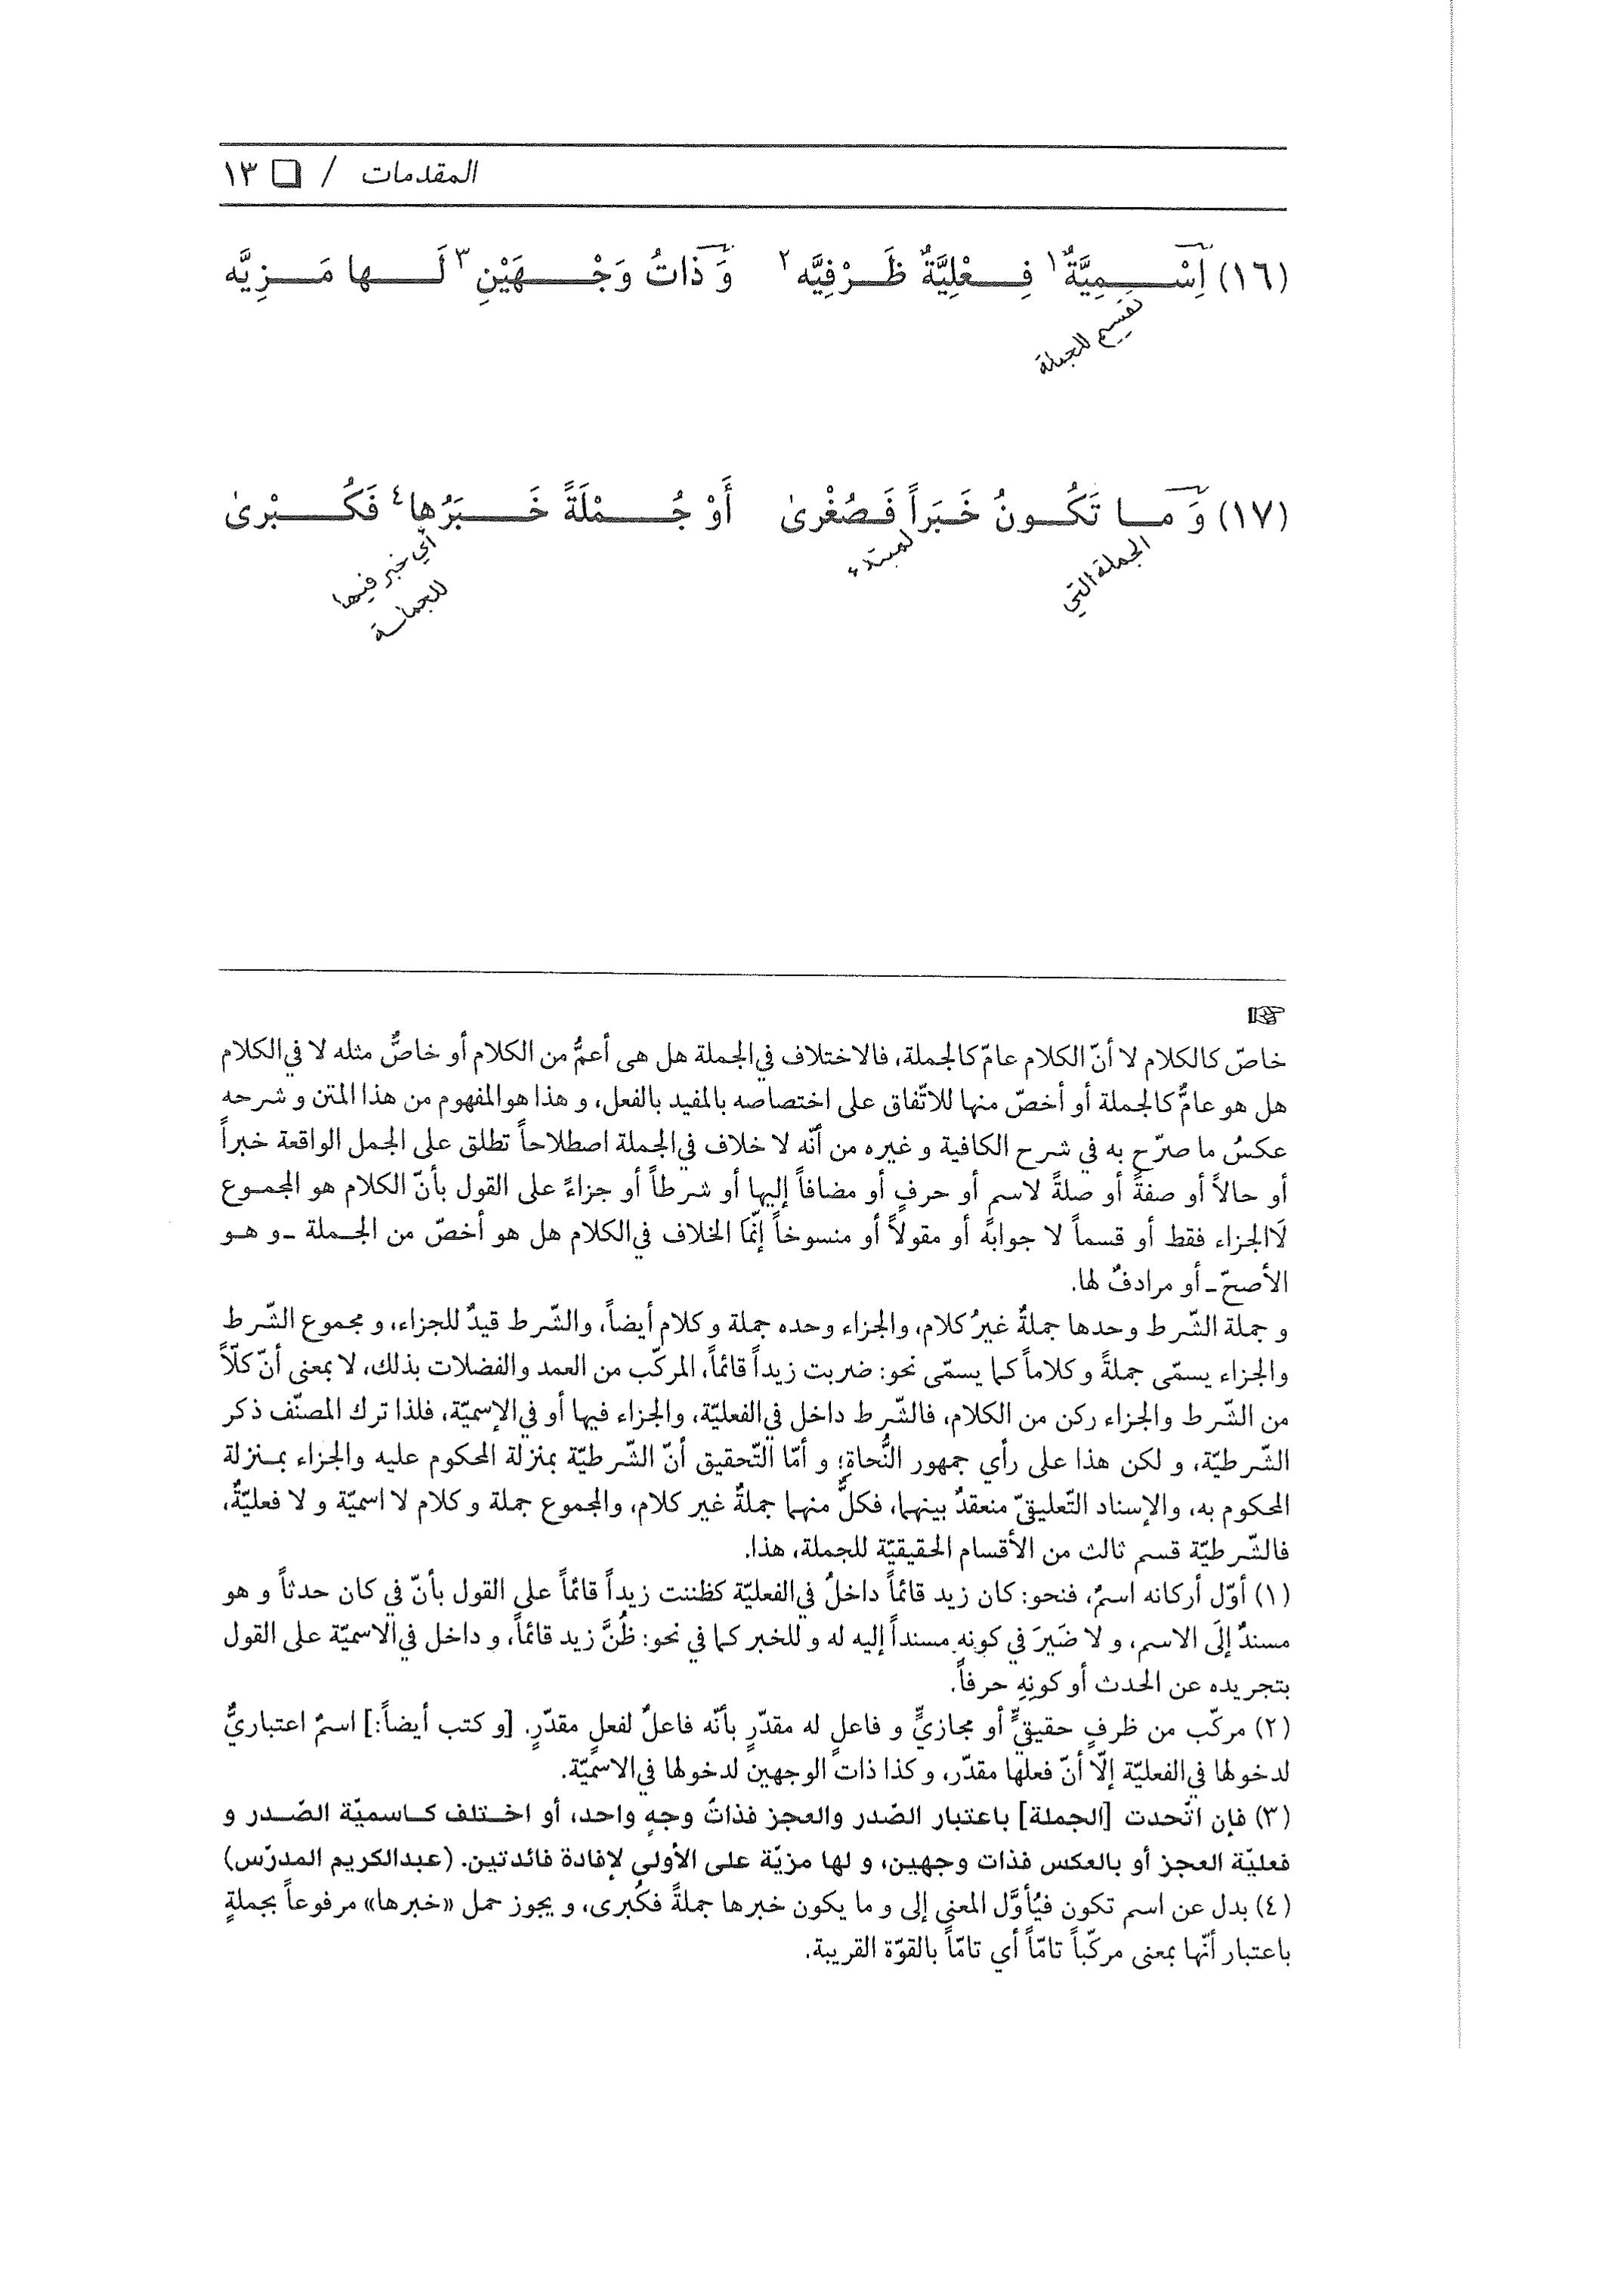 المقدمات / ❏ ١٣
(١٦) اِسْمِيَّةٌ١ فِعْلِيَّةٌ ظَرْفِيَّه٢ وَ ذاتُ وَجْهَيْنِ٣ لَها مَزِيَّه
تقسيم للجملة
(١٧) وَ ما تَكُونُ خَبَراً فَصُغْرىٰ أَوْ جُمْلَةً خَبَرُها٤ فَكُبْرىٰ
الجملة التي
لمبتدء
أي خبر فيها
للجملة
☞
خاصّ كالكلام لا أنّ الكلام عامّ كالجملة، فالاختلاف في‌الجملة هل هى أعمُّ من الكلام أو خاصٌّ مثله لا في‌الكلام
هل هو عامٌّ كالجملة أو أخصّ منها للاتّفاق على اختصاصه بالمفيد بالفعل، و هذا هوالمفهوم من هذا المتن و شرحه
عكسُ ما صرّح به في شرح الكافية و غيره من أنّه لا خلاف في‌الجملة اصطلاحاً تطلق على الجمل الواقعة خبراً
أو حالاً أو صفةً أو صلةً لاسمٍ أو حرفٍ أو مضافاً إليها أو شرطاً أو جزاءً على القول بأنّ الكلام هو المجموع
لَاالجزاء فقط أو قسماً لا جوابَهُ أو مقولاً أو منسوخاً إنَّمَا الخلاف في‌الكلام هل هو أخصّ من الجملة ـ و هو
الأصحّ ـ أو مرادفٌ لها.
و جملة الشّرط وحدها جملةٌ غيرُ كلام، والجزاء وحده جملة و كلام أيضاً، والشّرط قيدٌ للجزاء، و مجموع الشّرط
والجزاء يسمّى جملةً و كلاماً كما يسمّى نحو: ضربت زيداً قائماً، المركّب من العمد والفضلات بذلك، لا بمعنى أنّ كلّاً
من الشّرط والجزاء ركن من الكلام، فالشّرط داخل في‌الفعليّة، والجزاء فيها أو في‌الإسميّة، فلذا ترك المصنّف ذكر
الشّرطيّة، و لكن هذا على رأي جمهور النُّحاةِ؛ و أمّا التّحقيق أنّ الشّرطيّة بمنزلة المحكوم عليه والجزاء بمنزلة
المحكوم به، والإسناد التّعليقيّ منعقدٌ بينهما، فكلٌّ منهما جملةٌ غير كلام، والمجموع جملة و كلام لا اسميّة و لا فعليّةٌ،
فالشّرطيّة قسم ثالث من الأقسام الحقيقيّة للجملة، هذا.
(١) أوّل أركانه اسمٌ، فنحو: كان زيد قائماً داخلٌ في‌الفعليّة كظننت زيداً قائماً على القول بأنّ في كان حدثاً و هو
مسندٌ إلَى الاسم، و لا ضَيرَ في كونِه مسنداً إليه له و للخبر كما في نحو: ظُنَّ زيد قائماً، و داخل في‌الاسميّة على القول
بتجريده عن الحدث أو كونِهِ حرفاً.
(٢) مركّب من ظرفٍ حقيقيٍّ أو مجازيٍّ و فاعلٍ له مقدّرٍ بأنّه فاعلٌ لفعلٍ مقدّرٍ. [و كتب أيضاً:] اسمٌ اعتباريٌّ
لدخولها في‌الفعليّة إلّا أنّ فعلها مقدّر، و كذا ذات الوجهين لدخولها في‌الاسميّة.
(٣) فإن اتّحدت [الجملة] باعتبار الصّدر والعجز فذاتُ وجهٍ واحد، أو اختلف كاسميّة الصّدر و
فعليّة العجز أو بالعكس فذات وجهين، و لها مزيّة على الأولى لإفادة فائدتين. (عبدالكريم المدرّس)
(٤) بدل عن اسم تكون فيُأوَّل المعنى إلى و ما يكون خبرها جملةً فكُبرى، و يجوز حمل «خبرها» مرفوعاً بجملةٍ
باعتبار أنّها بمعنى مركّباً تامّاً أي تامّاً بالقوّة القريبة.